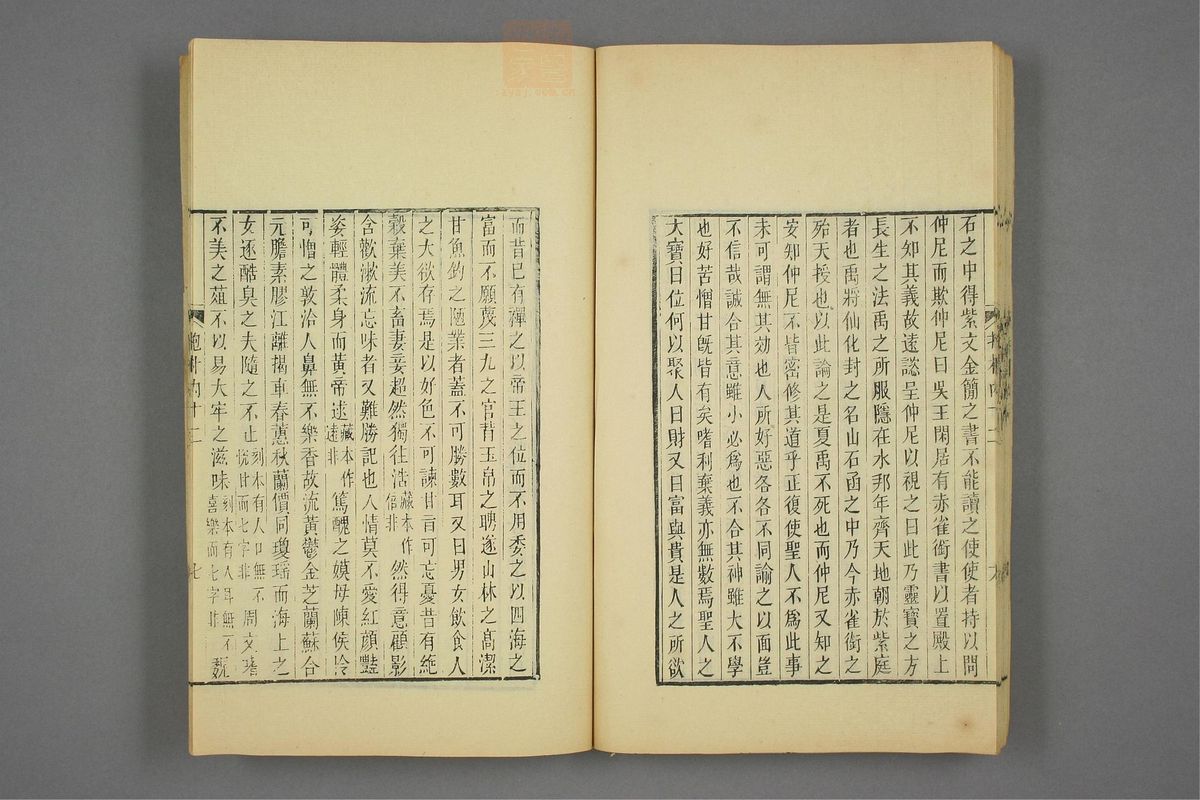 石之中得紫文金簡之書不能讀之使使者持以問
仲尼而欺仲尼曰吳王閑居有赤雀銜書以置殿上
不知其義故遠諮呈仲尼以視之曰此乃靈寶之方
長生之法禹之所服隱在水邦年齊天地朝於紫庭
者也禹將仙化封之名山石函之中乃今赤雀銜之
殆天授也以此論之是夏禹不死也而仲尼又知之
安知仲尼不皆密修其道乎正復使聖人不為此事
未可謂無其効也人所好惡各各不同諭之以面豈
不信哉誠合其意雖小必為也不合其神雖大不學
也好苦憎甘旣皆有矣嗜利棄義亦無數焉聖人之
大寶曰位何以聚人曰財又曰富與貴是人之所欲
而昔已有禪之以帝王之位而不用委之以四海之
富而不願蔑三九之官背玉帛之聘遂山林之高潔
甘魚釣之陋業者蓋不可勝數耳又曰男女飲食人
之大欲存焉是以好色不可諫甘旨可忘憂昔有絶
穀棄美不畜妻妾超然獨往浩藏本作倍非然得意顧影
含歡漱流忘味者又難勝記也人情莫不愛紅顔豔
姿輕體柔身而黃帝逑藏本作逮非篤醜之嫫母陳侯怜
可憎之敦洽人鼻無不樂香故流黃鬱金芝蘭蘇合
元膽素膠江離揭車春蕙秋蘭價同瓊瑤而海上之
女逐酷臭之夫隨之不止刻本有人口無不悅甘而七字非周文嗜
不美之葅不以易大牢之滋味刻本有人耳無不喜樂而七字非魏
抱朴内十二
七